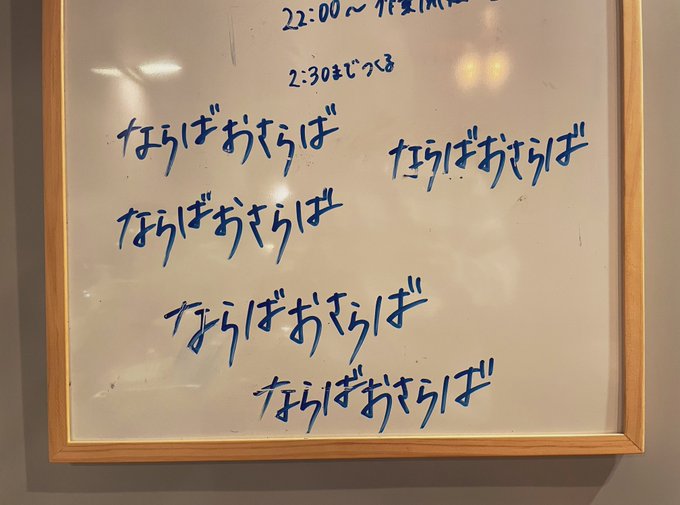 22:00〜作業開始
2:30までつくる
ならばおさらば
ならばおさらば
ならばおさらば
ならばおさらば
ならばおさらば